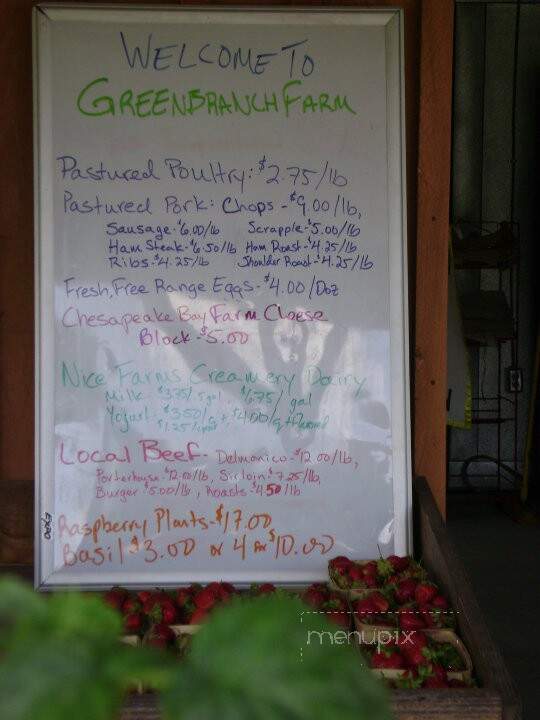 WELCOME TO
GREENBRANCH FARM
Pastured Poultry: $2.75/lb
Pastured Pork: Chops - $9.00/lb,
Sausage - $6.00/lb Scrapple - $5.00/lb
Ham Steak - $6.50/lb Ham Roast - $4.25/lb
Ribs - $4.25/lb Shoulder Roast - $4.25/lb
Fresh, Free Range Eggs - $4.00/Doz
Chesapeake Bay Farm Cheese
Block - $5.00
Nice Farms Creamery Dairy
Milk - $3.75/.5gal $6.75/gal
Yogurt - $3.50/ $4.00/
$1.25/
Local Beef - Delmonico - $12.00/lb,
Porterhouse - $12.00/lb, Sirloin - $7.25/lb,
Burger $5.00/lb, Roasts - $4.50/lb
Raspberry Plants - $17.00
Basil $3.00 or 4 for $10.00
EXPO
menupix